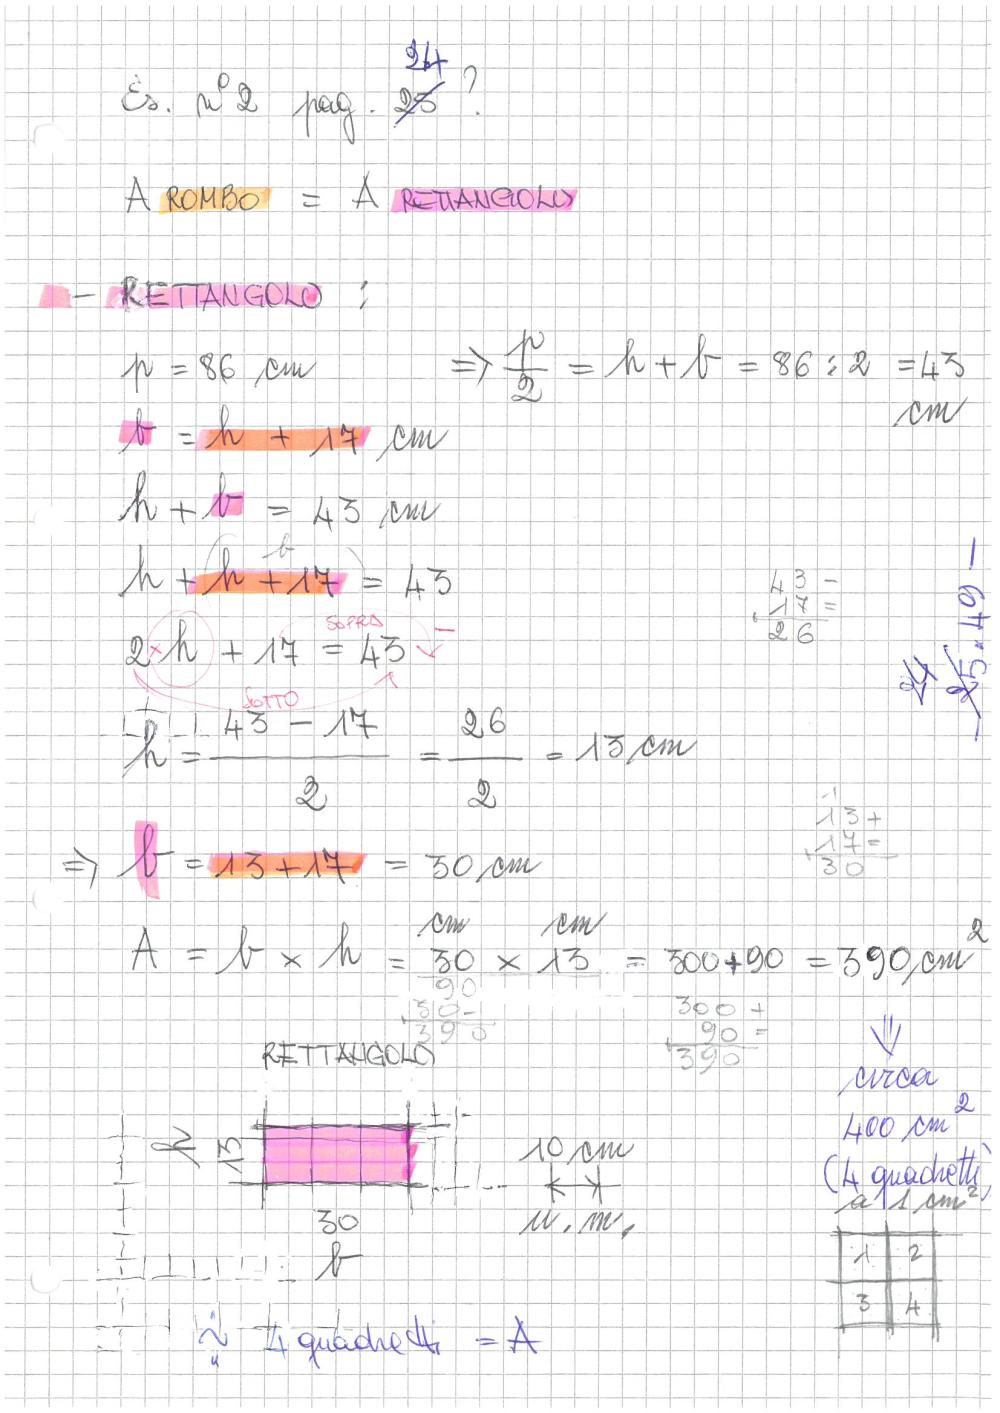 24
Es. n° 2 pag. 25 ?
A ROMBO = A RETTANGOLO
- RETTANGOLO :
p = 86 cm ⇒ p/2 = h + b = 86 : 2 = 43 cm
b = h + 17 cm
h + b = 43 cm
b
h + (h + 17) = 43
43 -
17 =
26
SOPRA
2 × h + 17 = 43 -
SOTTO
h = (43 - 17)/2 = 26/2 = 13 cm
1
13 +
17 =
30
⇒ b = 13 + 17 = 30 cm
cm cm
A = b × h = 30 × 13 = 300 + 90 = 390 cm²
90
30 -
390
300 +
90 =
390
⇓
circa
400 cm²
(4 quadretti
a 1 cm²
RETTANGOLO
h 13
30
b
10 cm
u. m.
1 2
3 4
4 quadretti = A